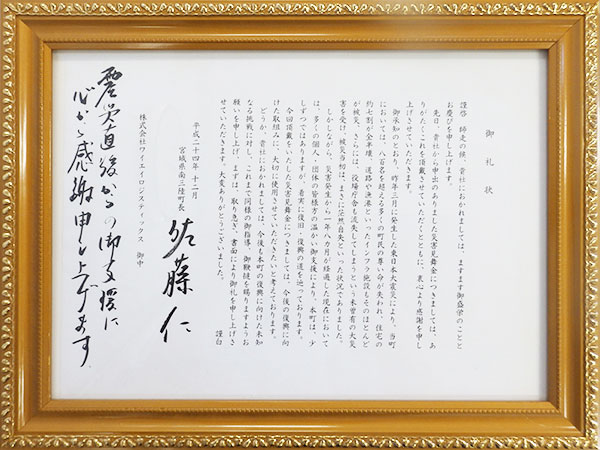 御礼状
謹啓 師走の候、貴社におかれましては、ますます御盛栄のこと
お慶びを申し上げます。
先日、貴社から申出のありました災害見舞金につきましては、あ
りがたくこれを頂戴させていただくとともに、衷心より感謝を申し
上げさせていただきます。
御承知のとおり、昨年三月に発生した東日本大震災により、当町
においては、八百名を超える多くの町民の尊い命が失われ、住宅の
約七割が全半壊、道路や漁港といったインフラ施設もそのほとんど
が被災、さらには、役場庁舎も流失してしまうという未曽有の大災
害を受け、被災当初は、まさに茫然自失といった状況でありました。
しかしながら、災害発生から一年八カ月が経過した現在において
は、多くの個人・団体の皆様方の温かい御支援により、本町は、少
しずつではありますが、着実に復旧・復興の道を辿っております。
今回頂戴をいたした災害見舞金につきましては、今後の復興に向
けた取組みに、大切に使用させていただきたいと考えております。
どうか、貴社におかれましては、今後も本町の復興に向けた未知
なる挑戦に対し、これまで同様の御指導、御鞭撻を賜りますようお
願いを申し上げ、まずは、取り急ぎ、書面により御礼を申し上げさ
せていただきます。大変ありがとうございました。
謹白
平成二十四年十二月
宮城県南三陸町長 佐藤仁
株式会社ワイエイロジスティックス 御中
震災直後からの御支援に
心から感謝申し上げます